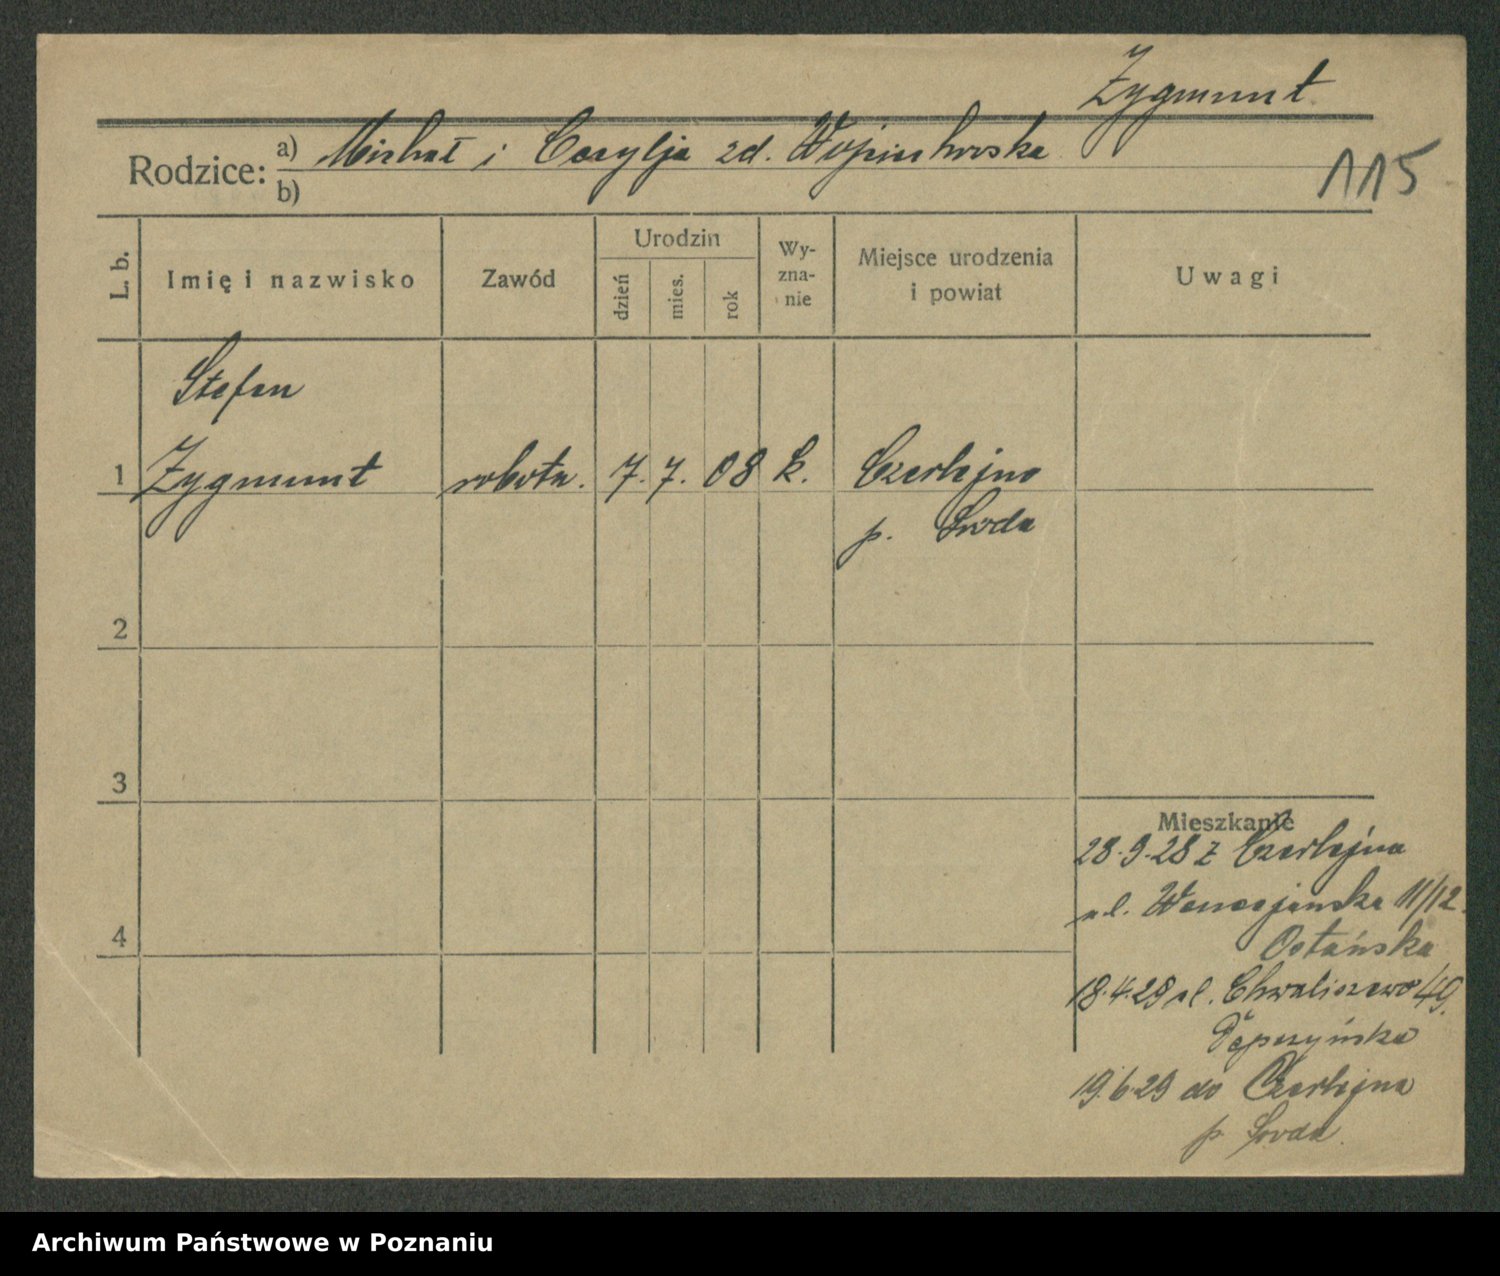 Zygmunt
Rodzice: a) Michał i Cecylja zd. Wojciechowska
b)
115
L. b.
Imię i nazwisko
Zawód
Urodzin
dzień
mies.
rok
Wy-
zna-
nie
Miejsce urodzenia
i powiat
Uwagi
Stefan
1 Zygmunt robotn. 7. 7. 08 k. Czerlejno
p. Środa
2
3
4
Mieszkanie
28.9.28 z Czerlejna
ul. 11/12.
18.4.29 ul. Chwaliszewo 49.
19.6.29 do Czerlejna
p. Środa.
Archiwum Państwowe w Poznaniu